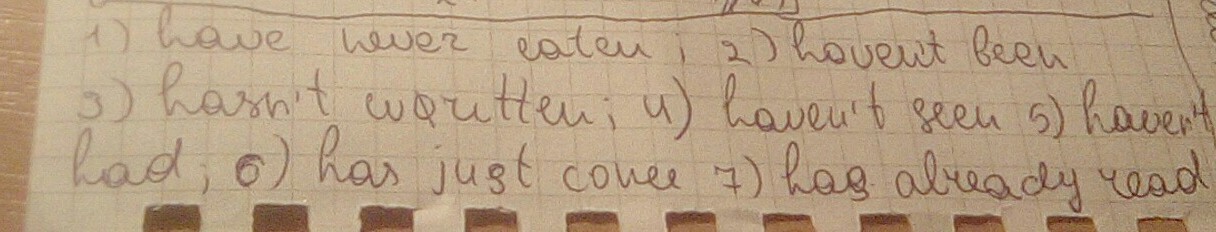 1) have never eaten; 2) haven't been
3) hasn't written; 4) haven't seen 5) haven't
had; 6) has just come 7) has already read